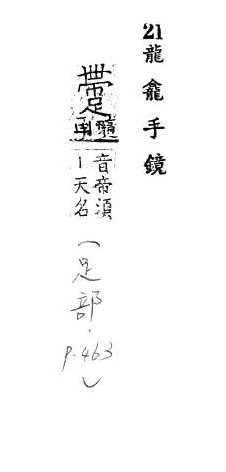 21龍龕手鏡
音帝須
丨天名
(足部·
p.463)